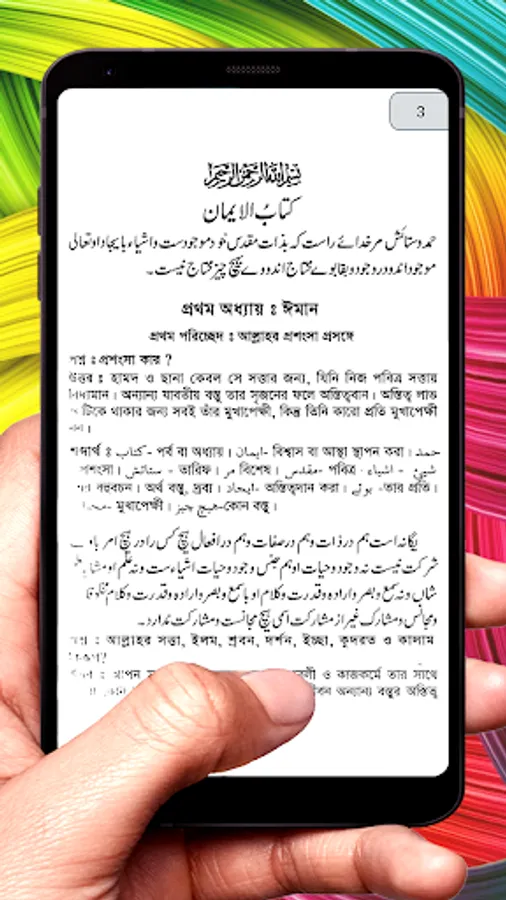 3
بسم الله الرحمن الرحيم
کتابُ الایمان
حمد وستائش مر خدائے راست کہ بذات مقدس خود موجودست و اشیاء بایجاد او تعالی
موجود اند و در وجود و بقا بوے محتاج اند و وے بہیچ چیز محتاج نیست۔
প্রথম অধ্যায় ঃ ঈমান
প্রথম পরিচ্ছেদ ঃ আল্লাহর প্রশংসা প্রসঙ্গে
ঃ প্রশংসা কার ?
উত্তর ঃ হামদ ও ছানা কেবল সে সত্তার জন্য, যিনি নিজ পবিত্র সত্তায়
। অন্যান্য যাবতীয় বস্তু তার সৃজনের ফলে অস্তিত্ববান। অস্তিত্ব লাভ
টিকে থাকার জন্য সবই তাঁর মুখাপেক্ষী, কিন্তু তিনি কারো প্রতি মুখাপেক্ষী
শব্দার্থ ঃ کتاب - পর্ব বা অধ্যায়। ایمان- বিশ্বাস বা আস্থা স্থাপন করা। حمد
। ستائش - তারিফ। مر বিশেষ। مقدس- পবিত্র اشیاء - شیئ
বহুবচন। অর্থ বস্তু, দ্রব্য। ایجاد- অস্তিত্বদান করা। بوئے -তার প্রতি।
- মুখাপেক্ষী। هیچ چیز-কোন বস্তু।
یگانہ است ہم در ذات و ہم در صفات و ہم در افعال ہیچ کس را در ہیچ امر
شرکت نیست نہ وجود و حیات او ہم جنس وجود و حیات اشیاء ست و نہ علم او
شاں و نہ سمع و بصر و ارادہ و قدرت و کلام او با سمع و بصر و ارادہ و قدرت و کلام
ومجانس و مشارک غیر از مشارکت اسمی ہیچ مجانست و مشارکت ندارد۔
ঃ আল্লাহর সত্তা, ইলম, শ্রবন, দর্শন, ইচ্ছা, কুদরত ও কালাম
ও কাজকর্মে তার সাথে
অন্যান্য বস্তুর অস্তিত্ব